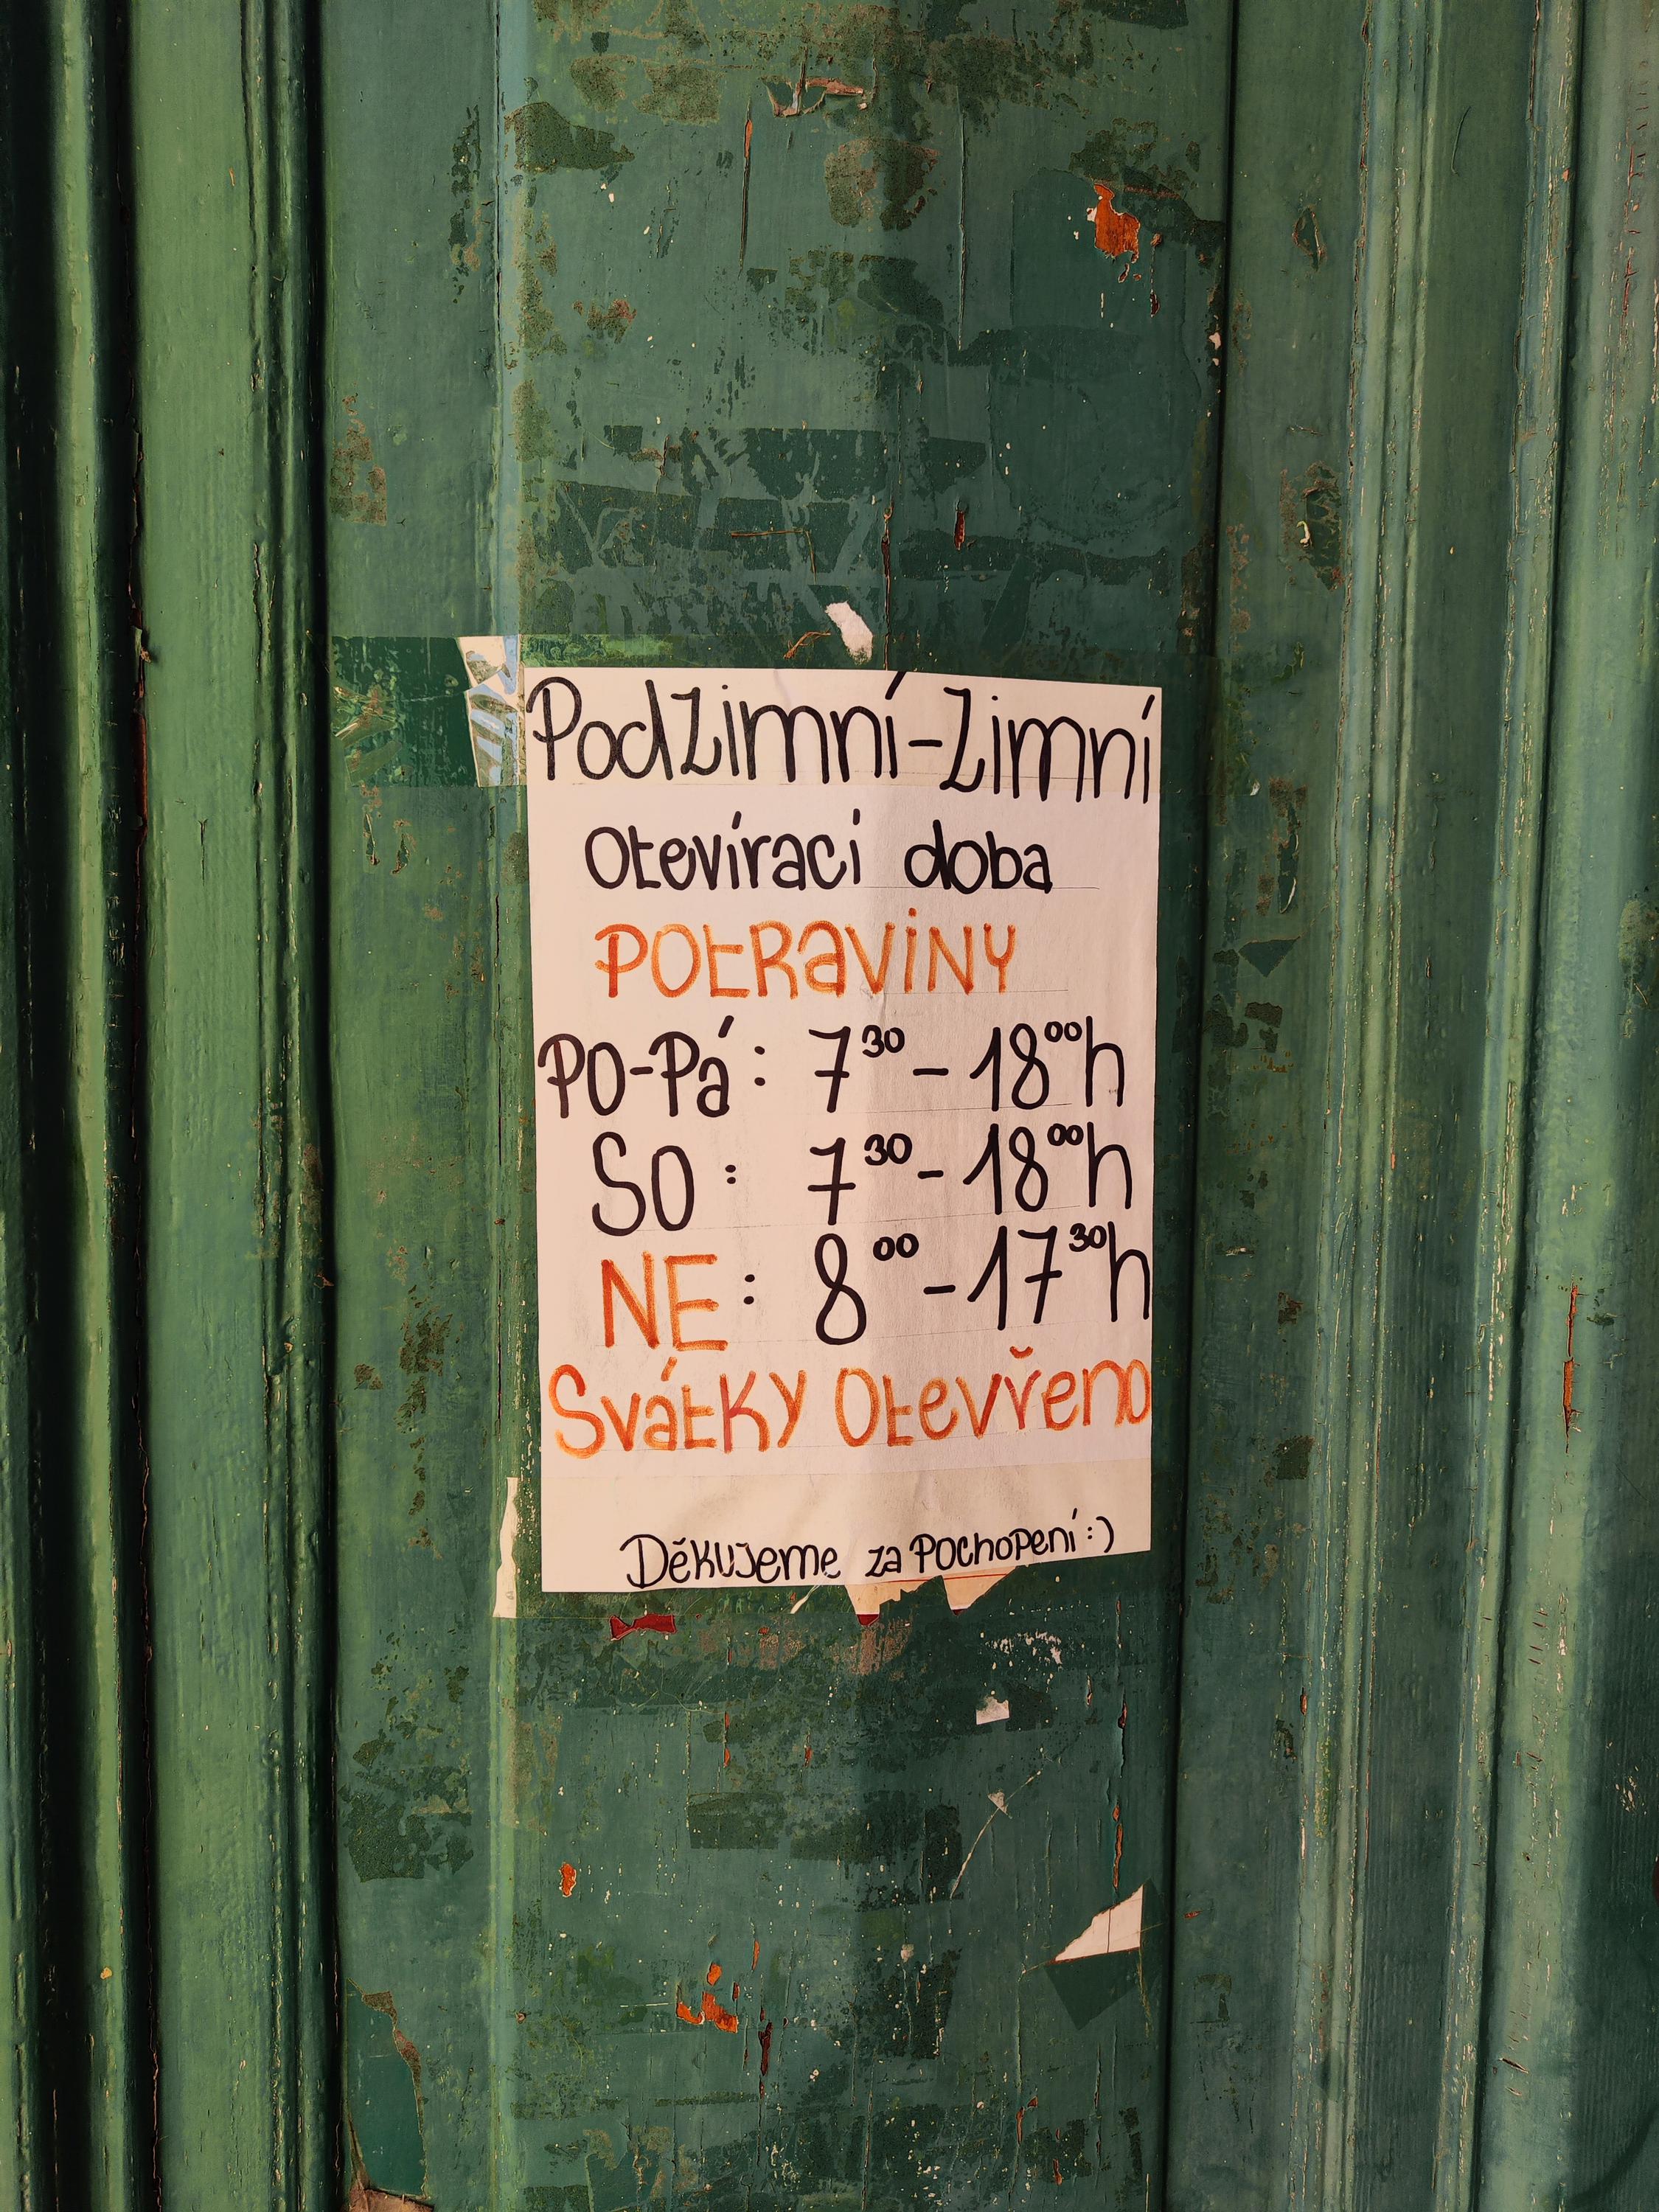 Podzimní-Zimní
Otevíraci doba
POtRaViNY
PO-Pá: 7³⁰ - 18⁰⁰h
SO: 7³⁰ - 18⁰⁰h
NE: 8⁰⁰ - 17³⁰h
SvátKy Otevřeno
Děkujeme za Pochopení :)